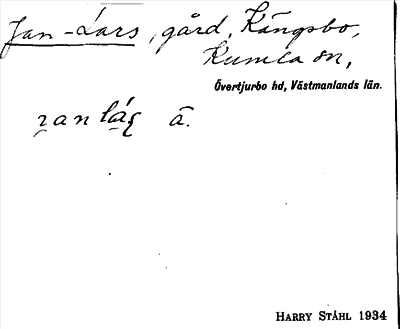 Jan-Lars, gård, Kångsbo,
Kumla sn,
Övertjurbo hd, Västmanlands län.
ā.
HARRY STÅHL 1934